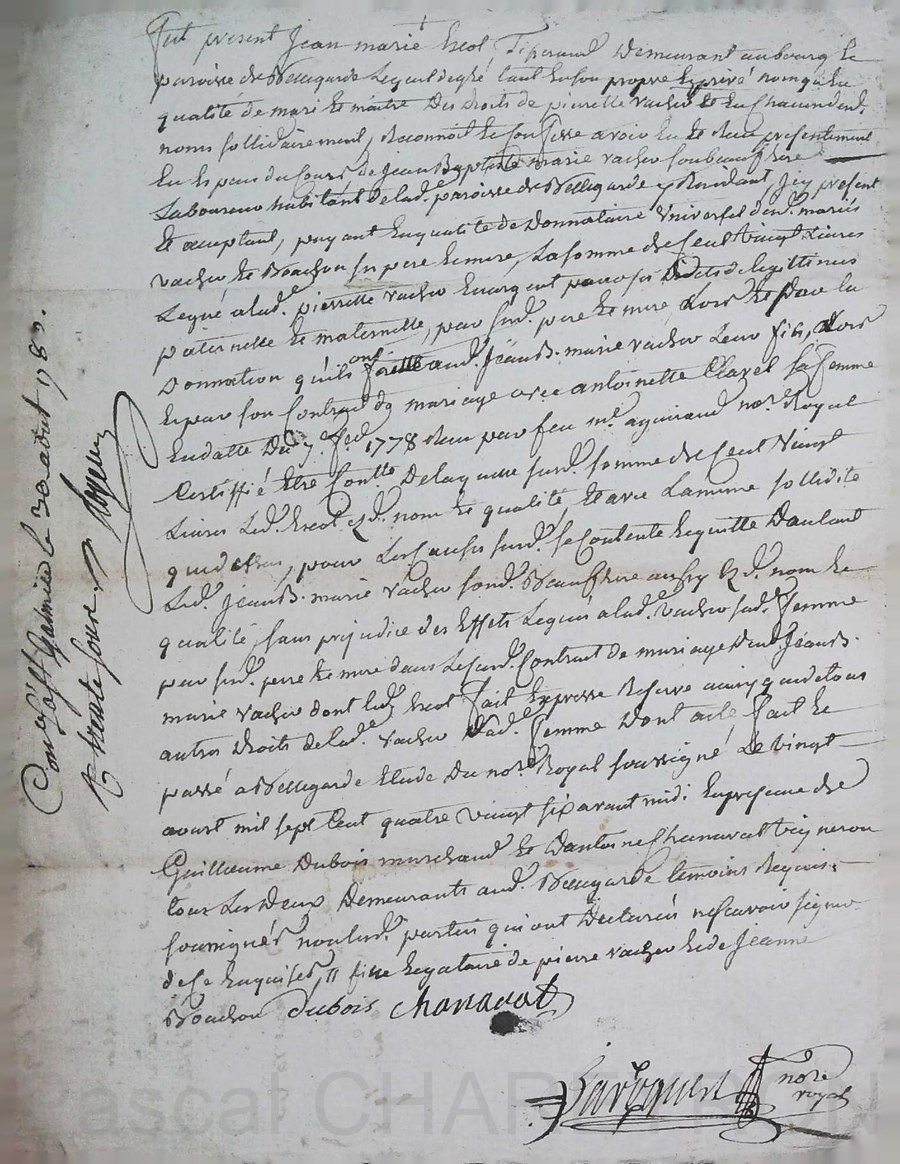 fut present Jean marie Escot, Tisserand Demeurant au bourg &
paroisse de Bellegarde Lequel de gré tant En son propre & privé nom qu'En
qualité de mari & maitre Des droits de pierrette vacher & En chacun desd.
noms sollidairement, Reconnoit & Confesse avoir Eu & Recu presentement
En Espaces du Cours de Jean Baptiste marie vacher son beaufrere
Laboureur habitant de lad. paroisse de Bellegarde y Residant, Icy present
& acceptant, payant En qualité de Donnataire Universel desd. mariés
vacher & Bouchon ses pere & mere, La somme de Cent Vingt Livres
Legué a lad. pierrette vacher En argent pour ses droits de legittimes
paternelle & maternelle, par sesd. pere & mere, Lors & par la
Donnation qu'ils ont faitte aud. Jean B. marie vacher Leur fils, Lors
& par son Contract de mariage avec antoinette Clavel sa femme
En datte Du 7. fev. 1778 Recu par feu me. aguiraud nore. Royal
Certiffié Etre Contlé De laquelle susd. somme de Cent Vingt
Livres Led. Escot esd. nom & qualité, & avec La même sollidité
que dessus, pour Les Causes susd. se Contente & quitte D'autant
Led. Jean B. marie vacher sond. Beaufrere aussy esd. nom &
qualité, sans prejudice des Effets Legués a lad. vacher sad. femme
par sesd. pere & mere dans Le susd. Contract de mariage dud. Jean B.
marie vacher dont led. Escot fait Expresse Reserve ainsy que de tous
autres Droits de lad. vacher sad. femme Dont acte fait &
passé a Bellegarde Etude Du nore. Royal soussigné Le vingt
aoust mil sept Cent quatre vingt six avant midi En presence de
Guillaume Dubois marchand & D'antoine Chanavat vigneron
tous Les Deux Demeurants aud. Bellegarde temoins Requis
soussignés non lesd. parties qui ont Declarés ne scavoir signer
de ce Enquises, fille Legataire de pierre vacher & de Jeanne
Bouchon Dubois Chanavat
nore
royal
Con. a St Galmier le 30 aout 178
R. trente sous